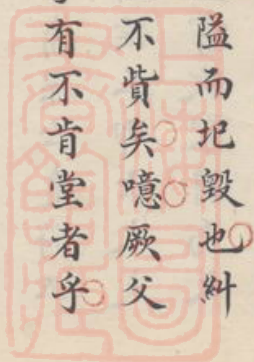 隘而圮毀也糾
不貲矣噫厥父
有不肯堂者乎